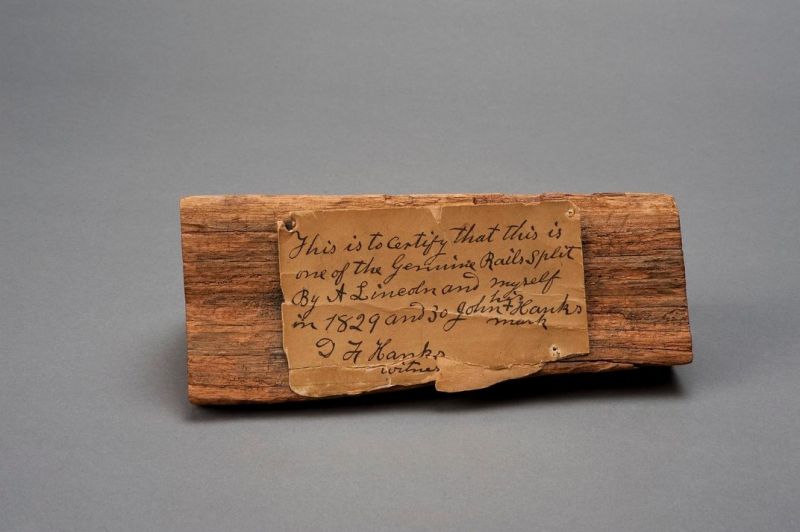 This is to certify that this is
one of the Genuine Rails Split
By A Lincoln and myself
in 1829 and 30 John his + Hanks
mark
D F Hanks
witnes